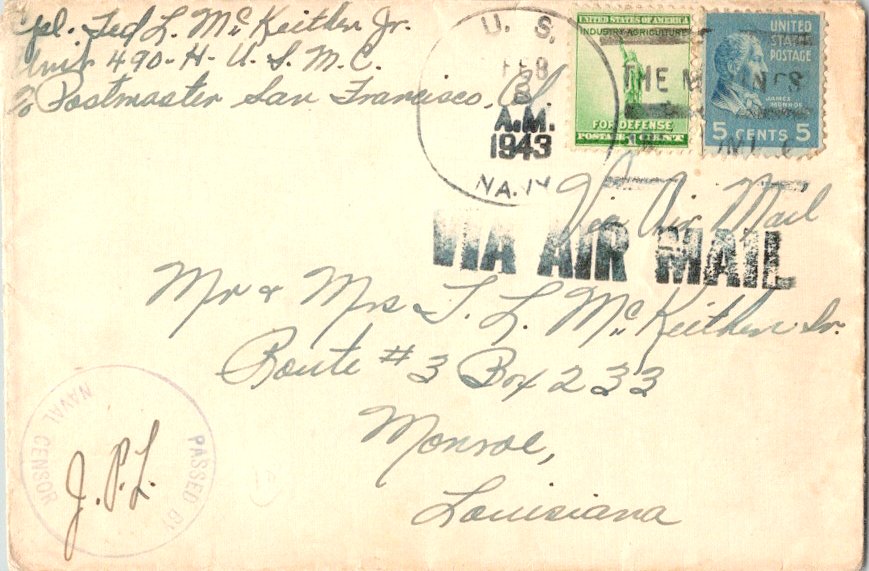 Cpl. Ted L. McKeithen Jr.
Unit 490-H-U.S.M.C.
c/o Postmaster San Francisco, Cal.
U. S.
FEB
8
A.M.
1943
NAVY
UNITED STATES OF AMERICA
INDUSTRY-AGRICULTURE
FOR DEFENSE
POSTAGE 1 CENT
UNITED
STATES
POSTAGE
JAMES
MONROE
5 CENTS 5
THE M
Via Air Mail
VIA AIR MAIL
Mr & Mrs T. L. McKeithen Sr.
Route #3 Box 233
Monroe,
Louisiana
PASSED BY
NAVAL CENSOR
J.P.L.